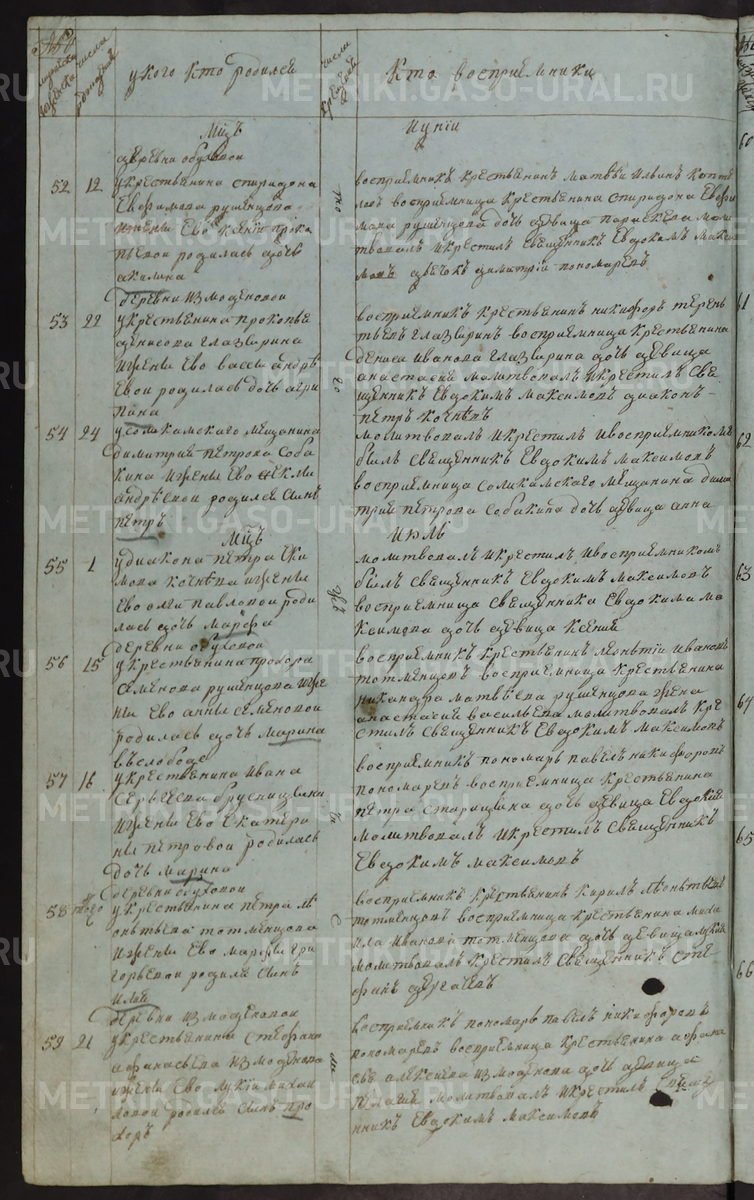 у кого кто родился
числа
Кто восприемники
Мцъ
Иунiи
деревни обуховой
52 12 у крестьянина спиридона
Евфимова рушенцова
и жены Ево ксенiи проко
пьевой родилась дочь
акилина
восприемникъ крестьянинъ матвей ильинъ
восприемница крестьянина спиридона Евфи
мова рушенцова дочь девица параскева моли
твовалъ и крестилъ священникъ Евдокимъ макси
мовъ дьячокъ димитрiй пономаревъ
деревни измоденовой
53 22 у крестьянина прокопья
денисова глазырина
и жены Ево вассы андрѣ
евой родилась дочь агри
пина
20
восприемникъ крестьянинъ никифоръ терень
тьевъ глазыринъ восприемница крестьянина
дениса иванова глазырина дочь девица
анастасия молитвовалъ и крестилъ свя
щенникъ Евдокимъ максимовъ диаконъ
петръ кочневъ
54 24 у соликамского мещанина
димитрия петрова соба
кина и жены Ево феклы
андрѣевой родился сынъ
петръ
молитвовалъ и крестилъ и восприемникомъ
былъ священникъ Евдокимъ максимовъ
восприемница соликамского мещанина дими
трия петрова собакина дочь девица анна
Мцъ
Июль
55 1 у диакона петра
кочнева и жены
Ево олги павловой роди
лась дочь марфа
молитвовалъ и крестилъ и восприемникомъ
былъ священникъ Евдокимъ максимовъ
восприемница священника Евдокима ма
ксимова дочь девица ксения
деревни обуховой
56 15 у крестьянина прохора
семенова рушенцова и же
ны Ево анны семеновой
родилась дочь марина
восприемникъ крестьянинъ леонтiй ивановъ
тотменцовъ восприемница крестьянина
никандра матвѣева рушенцова жена
анастасия васильева молитвовалъ и кре
стилъ священникъ Евдокимъ максимовъ
въ слободе
57 16 у крестьянина ивана
сергѣева брусницына
и жены Ево Екатери
ны петровой родилась
дочь марина
восприемникъ пономарь павелъ никифоровъ
пономаревъ восприемница крестьянина
петра старицына дочь девица Евдокия
молитвовалъ и крестилъ священникъ
Евдокимъ максимовъ
деревни обуховой
58 того у крестьянина петра лѣ
онтьева тотменцова
и жены Ево марфы гри
горьевой родился сынъ
илия
восприемникъ крестьянинъ кирилъ лѣонтьевъ
тотменцовъ восприемница крестьянина миха
ила иванова тотменцова дочь девица
молитвовалъ и крестилъ священникъ сте
фанъ дергачевъ
деревни измоденовой
59 21 у крестьянина стефана
афанасьева измоденова
и жены Ево лукии михай
ловой родился сынъ про
хоръ
восприемникъ пономарь павелъ никифоровъ
пономаревъ восприемница крестьянина афана
сья алексеева измоденова дочь девица
пелагия молитвовалъ и крестилъ свяще
нникъ Евдокимъ максимовъ
60
61
62
63
64
65
66
METRIKI.GASO-URAL.RU